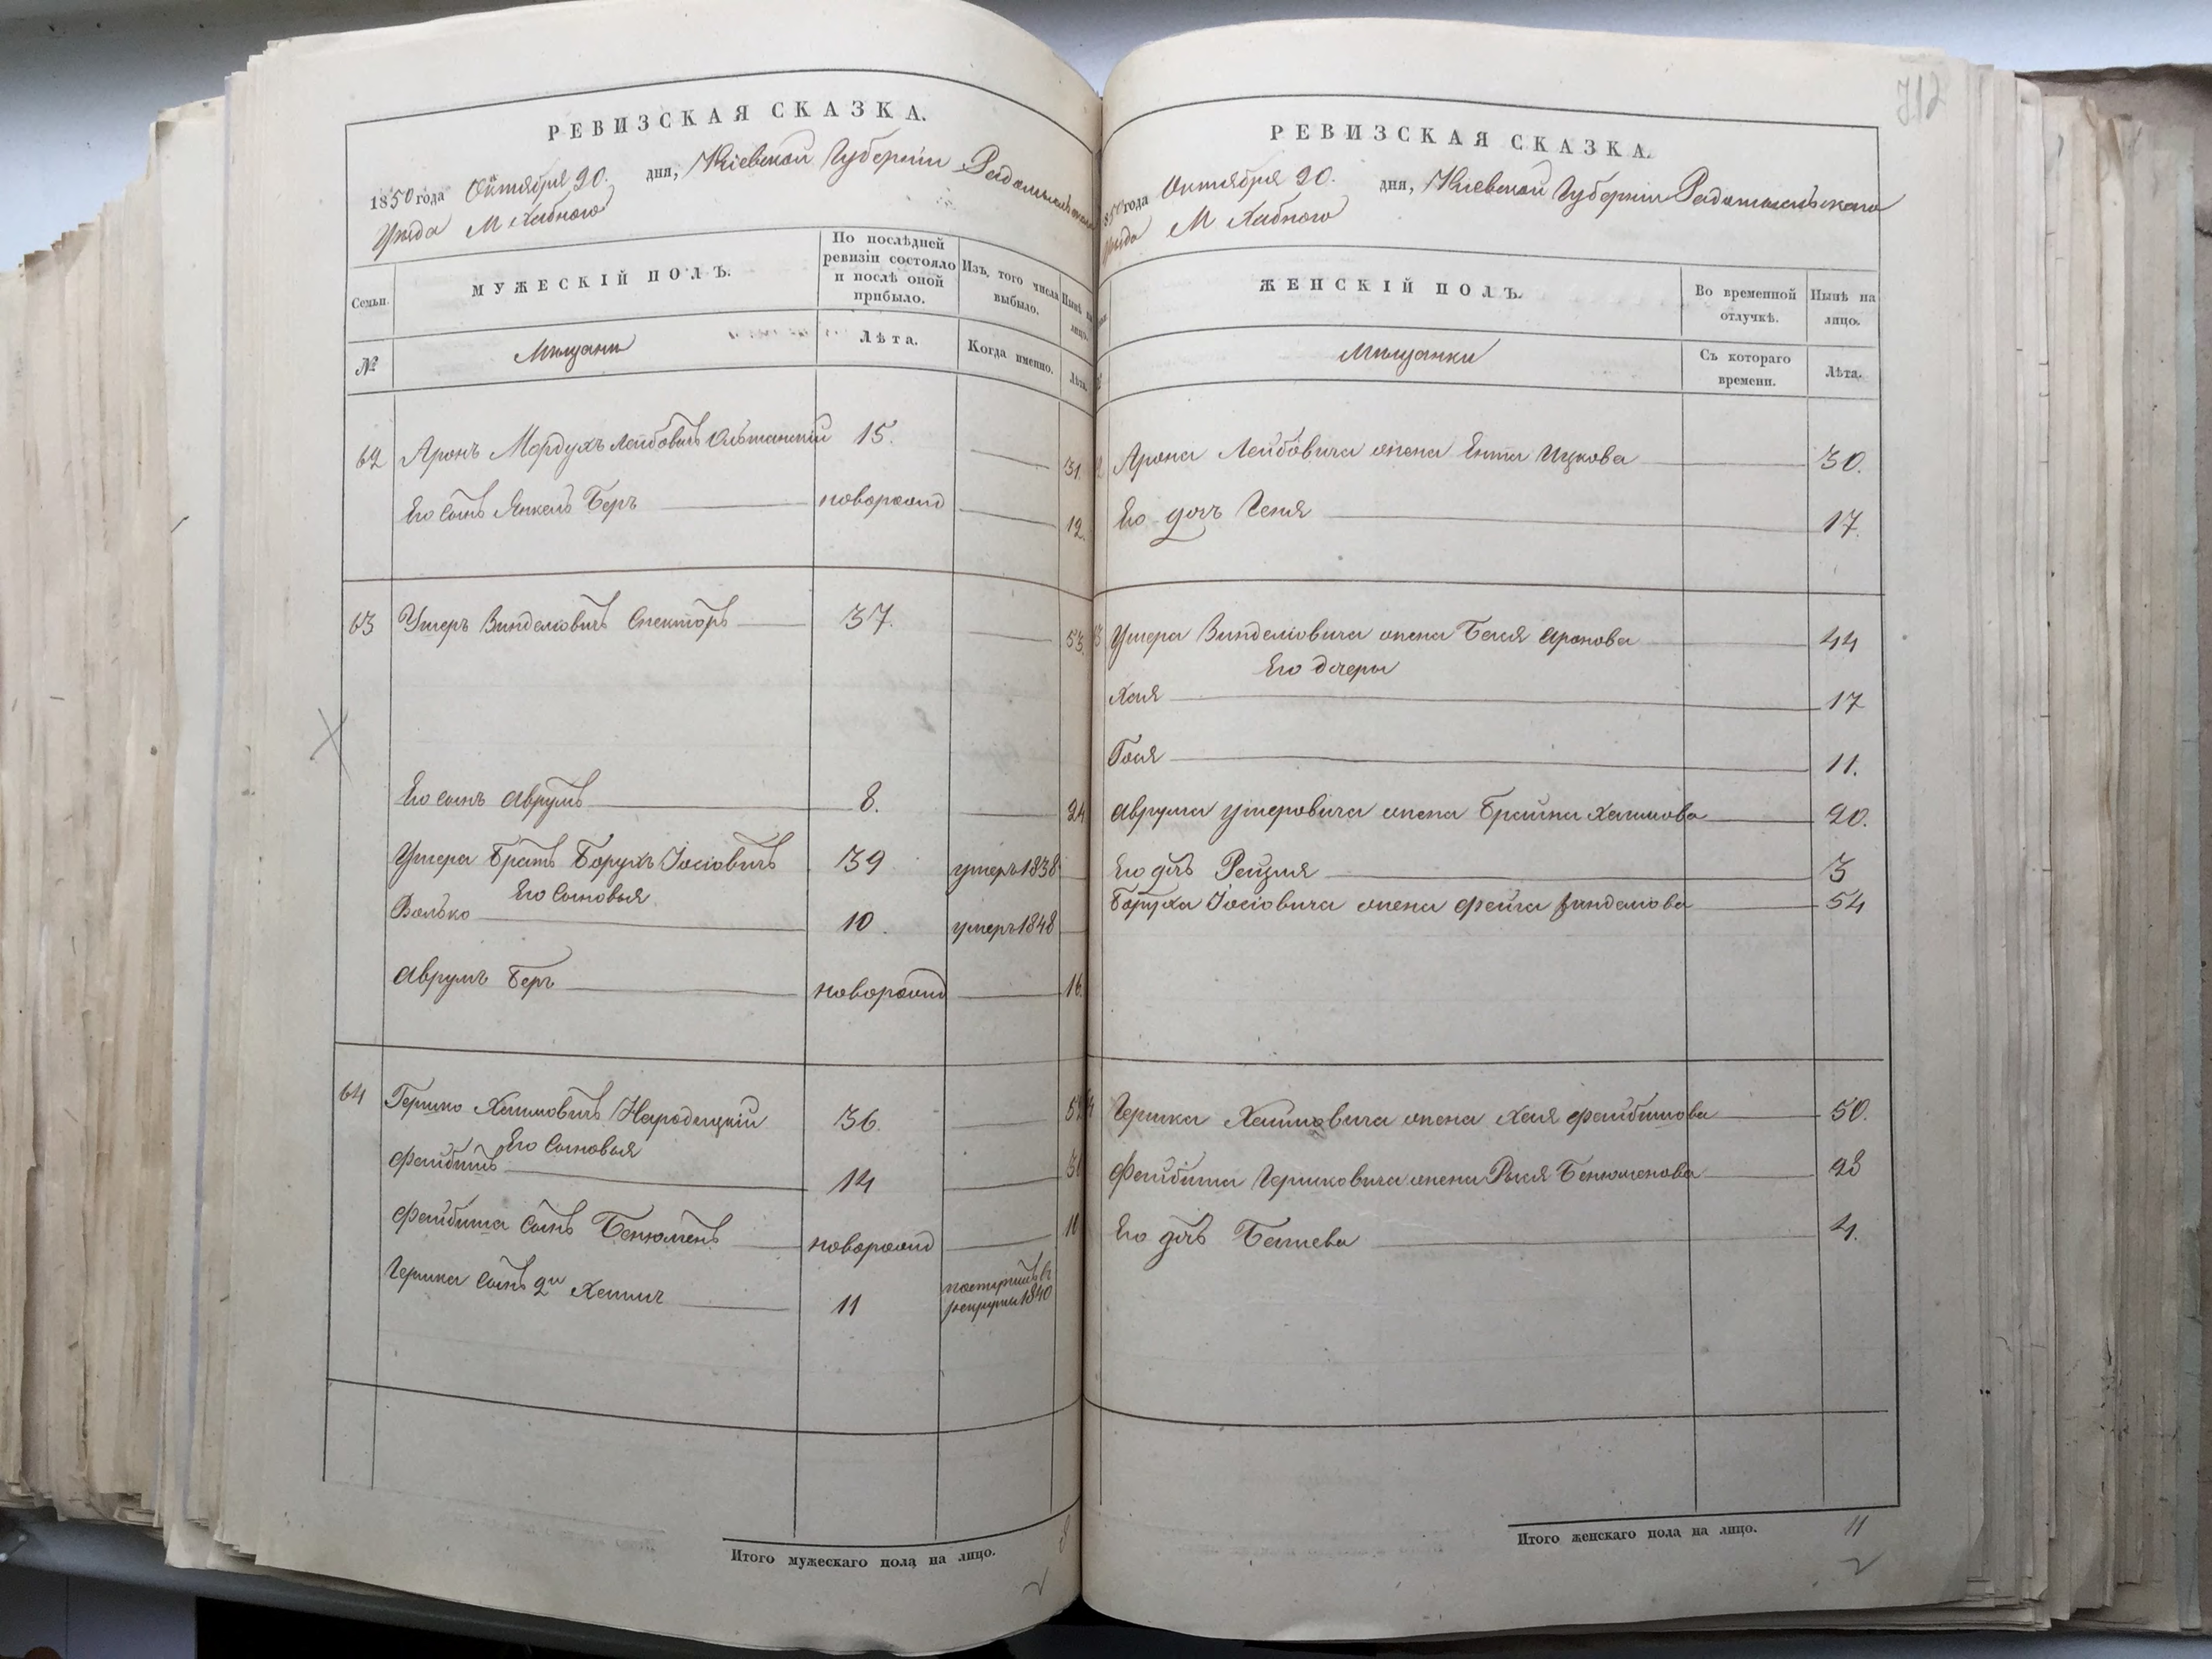 РЕВИЗСКАЯ СКАЗКА.
1850 года Октября 20. дня, Кіевской Губерніи Радомысльскаго
Уѣзда М Хабного
Семьи.
МУЖЕСКІЙ ПОЛЪ.
По послѣдней ревизіи состояло и послѣ оной прибыло.
Изъ того числа выбыло.
Нынѣ на лицо.
№
Мѣщани
Лѣта.
Когда именно.
Лѣта.
62 Аронъ Мордухъ Лейбовичъ Ольшанскій 15. 31.
Его сынъ Янкель Беръ новорожд 12.
63 Ушеръ Винделовичъ Спекторъ 37. 53.
Его сынъ Аврумъ 8. 24
Ушера братъ Борухъ Іосіовичъ 39 умеръ 1838
Его сыновья
Волько 10. умеръ 1848
Аврумъ Беръ новорожд 16.
64 Гершко Хаимовичъ Народицкій 36.
Его сыновья
Файбишъ 14
Файбиша сынъ Бенюменъ новорожд
Гершка сынъ 2й Хаимъ 11 рекруты 1840
Итого мужескаго пола на лицо. 8
712
РЕВИЗСКАЯ СКАЗКА.
1850 года Октября 20. дня, Кіевской Губерніи Радомысльскаго
Уѣзда М Хабного
ЖЕНСКІЙ ПОЛЪ.
Во временной отлучкѣ.
Нынѣ на лицо.
Мѣщанки
Съ котораго времени.
Лѣта.
Арона Лейбовича жена Ента Ицкова 30.
Его дочь Геня 17.
Ушера Винделіовича жена Бася Аронова 44
Его дочеры
Хая 17
Гося 11.
Аврума Ушеровича жена Брайна Хаимова 20.
Его дочь Рейзля 3
Боруха Іосіовича жена Фейга 54
Гершка Хаимовича жена Хая Файбишова 50.
Файбиша Гершковича жена Рися Бенюменова 28
Его дочь Башева 4.
Итого женскаго пола на лицо. 11